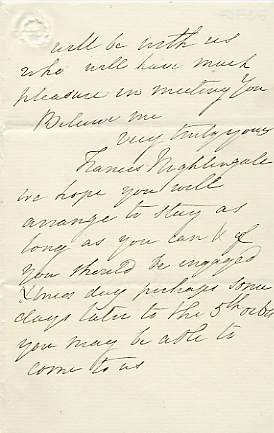 will be with us
who will have much
pleasure in meeting you
Believe me
very truly yours
Frances Nightingale
We hope you will
arrange to stay as
long as you can & if
you should be engaged
Xmas day perhaps some
days later to the 5th or 6th
you may be able to
come to us